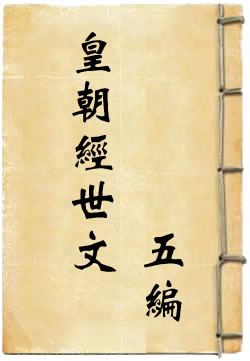 皇朝經世文
五編